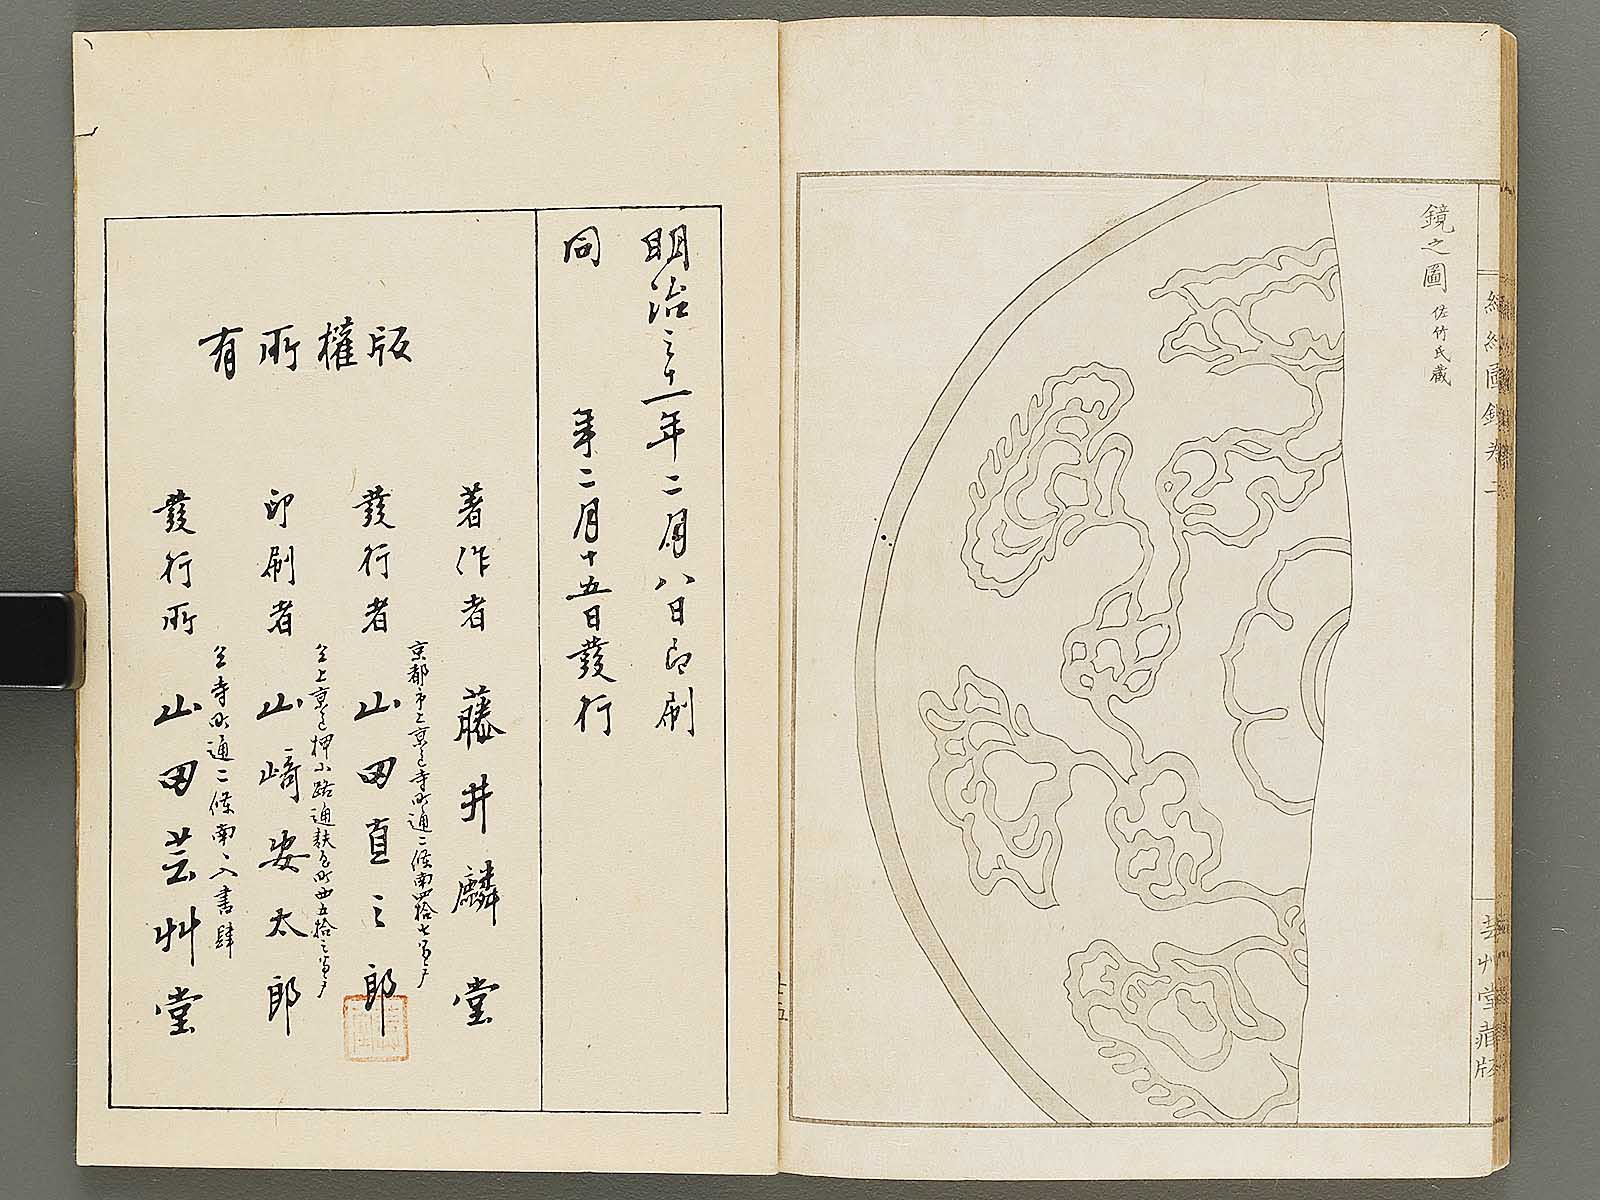 鏡之圖
佐竹氏蔵
芸艸堂蔵版
明治三十一年二月八日印刷
同 年二月十五日發行
版權所有
著作者 藤井麟堂
京都市上京區寺町通二條南四拾七番戸
發行者 山田直三郎
仝上京區押小路通麩屋町西五拾三番戸
印刷者 山﨑安太郎
仝寺町通二條南ヘ入書肆
發行所 山田芸艸堂